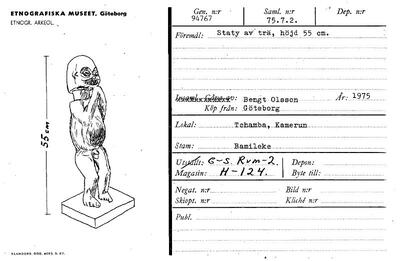 ETNOGRAFISKA MUSEET, Göteborg
ETNOGR. ARKEOL.
55 cm
Gen. nr
94767
Saml. nr
75.7.2.
Dep. nr
Föremål: Staty av trä, höjd 55 cm.
Bengt Olsson
År: 1975
Köp från: Göteborg
Lokal: Tchamba, Kamerun
Stam: Bamileke
Utställt: G-s. Rum-2.
Depon:
Magasin: H-124.
Byte till:
Negat. n:r
Bild n:r
Skiopt. n:r
Kliché n:r
Publ.